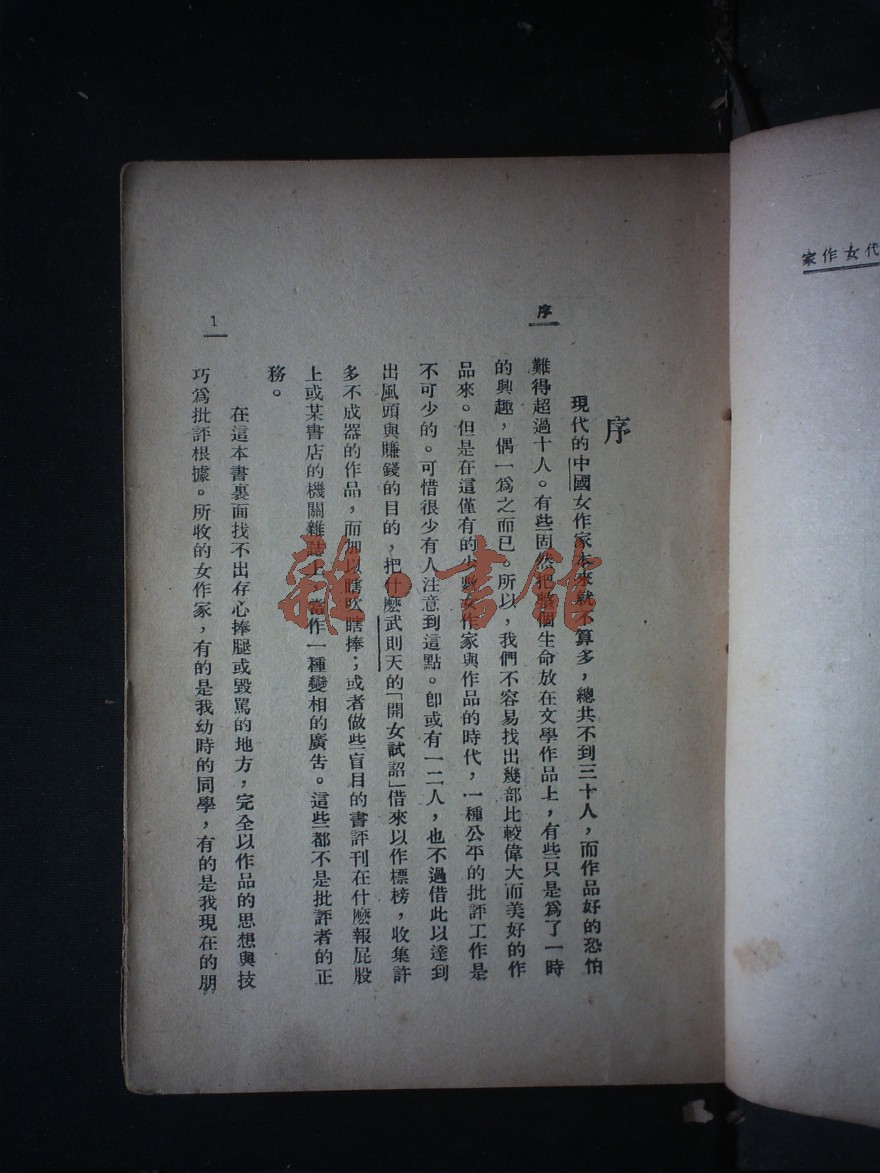 代女作家
序
序
現代的中國女作家本來就不算多，總共不到三十人，而作品好的恐怕
難得超過十人。有些固然把整個生命放在文學作品上，有些只是爲了一時
的興趣，偶一爲之而已。所以，我們不容易找出幾部比較偉大而美好的作
品來。但是在這僅有的少數女作家與作品的時代，一種公平的批評工作是
不可少的。可惜很少有人注意到這點。卽或有一二人，也不過借此以達到
出風頭與賺錢的目的，把什麽武則天的「開女試詔」借來以作標榜，收集許
多不成器的作品，而加以瞎吹瞎捧；或者做些盲目的書評刊在什麽報屁股
上或某書店的機關雜誌上，當作一種變相的廣告。這些都不是批評者的正
務。
在這本書裏面找不出存心捧腿或毀罵的地方，完全以作品的思想與技
巧爲批評根據。所收的女作家，有的是我幼時的同學，有的是我現在的朋
1
雜·書館